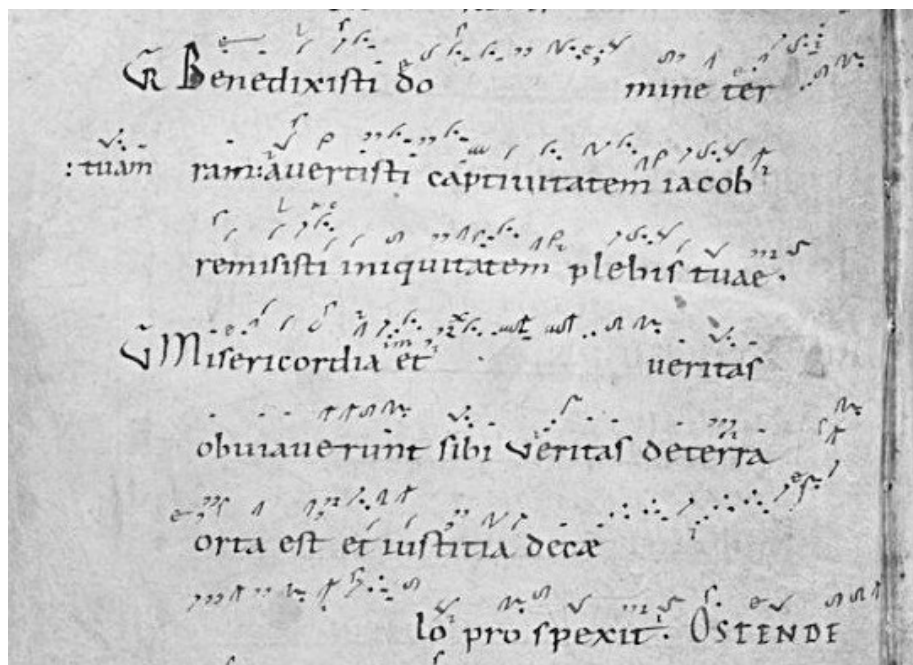 GR Benedixisti do mine ter
ram: avertisti captivitatem iacob
: tuam
remisisti iniquitatem plebis tuae.
V Misericordia et veritas
obviaverunt sibi veritas deterra
orta est et iustitia decæ
lo prospexit. OSTENDE